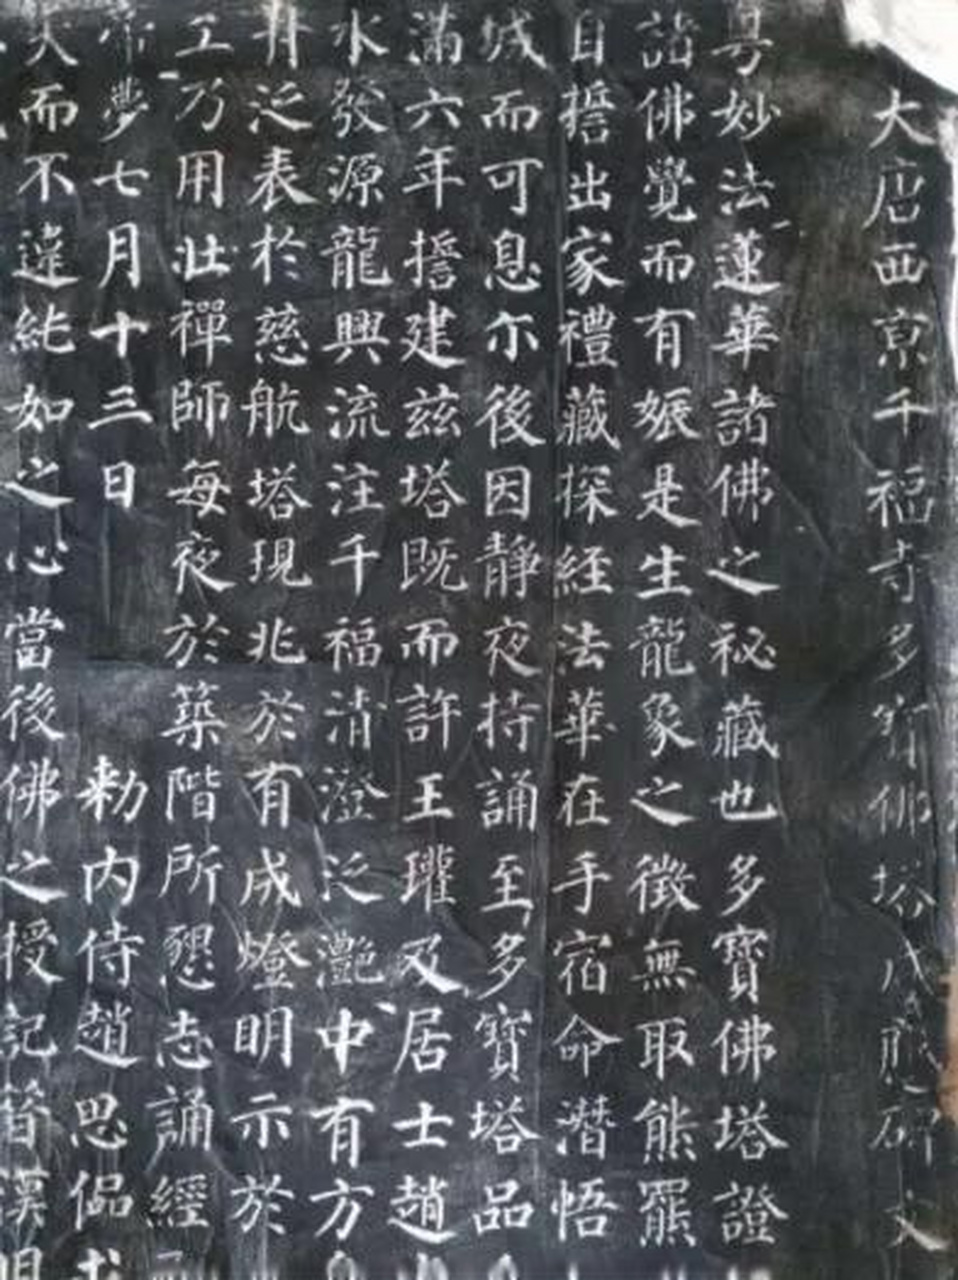 大唐西京千福寺多寶佛塔感應碑文
粵妙法蓮華諸佛之秘藏也多寶佛塔證
諮佛覺而有娠是生龍象之徵無取熊羆
自誓出家禮藏探經法華在手宿命潛悟
城而可息尓後因靜夜持誦至多寶塔品
滿六年誓建茲塔既而許王瓘及居士趙
水發源龍興流注千福清澄泛灩中有方
舟泛表於慈航塔現兆於有成燈明示於
工乃用壯禪師每夜於築階所懇志誦經
帝夢七月十三日 勅内侍趙思侃求
大而不違純如之心當後佛之授記昔漢明